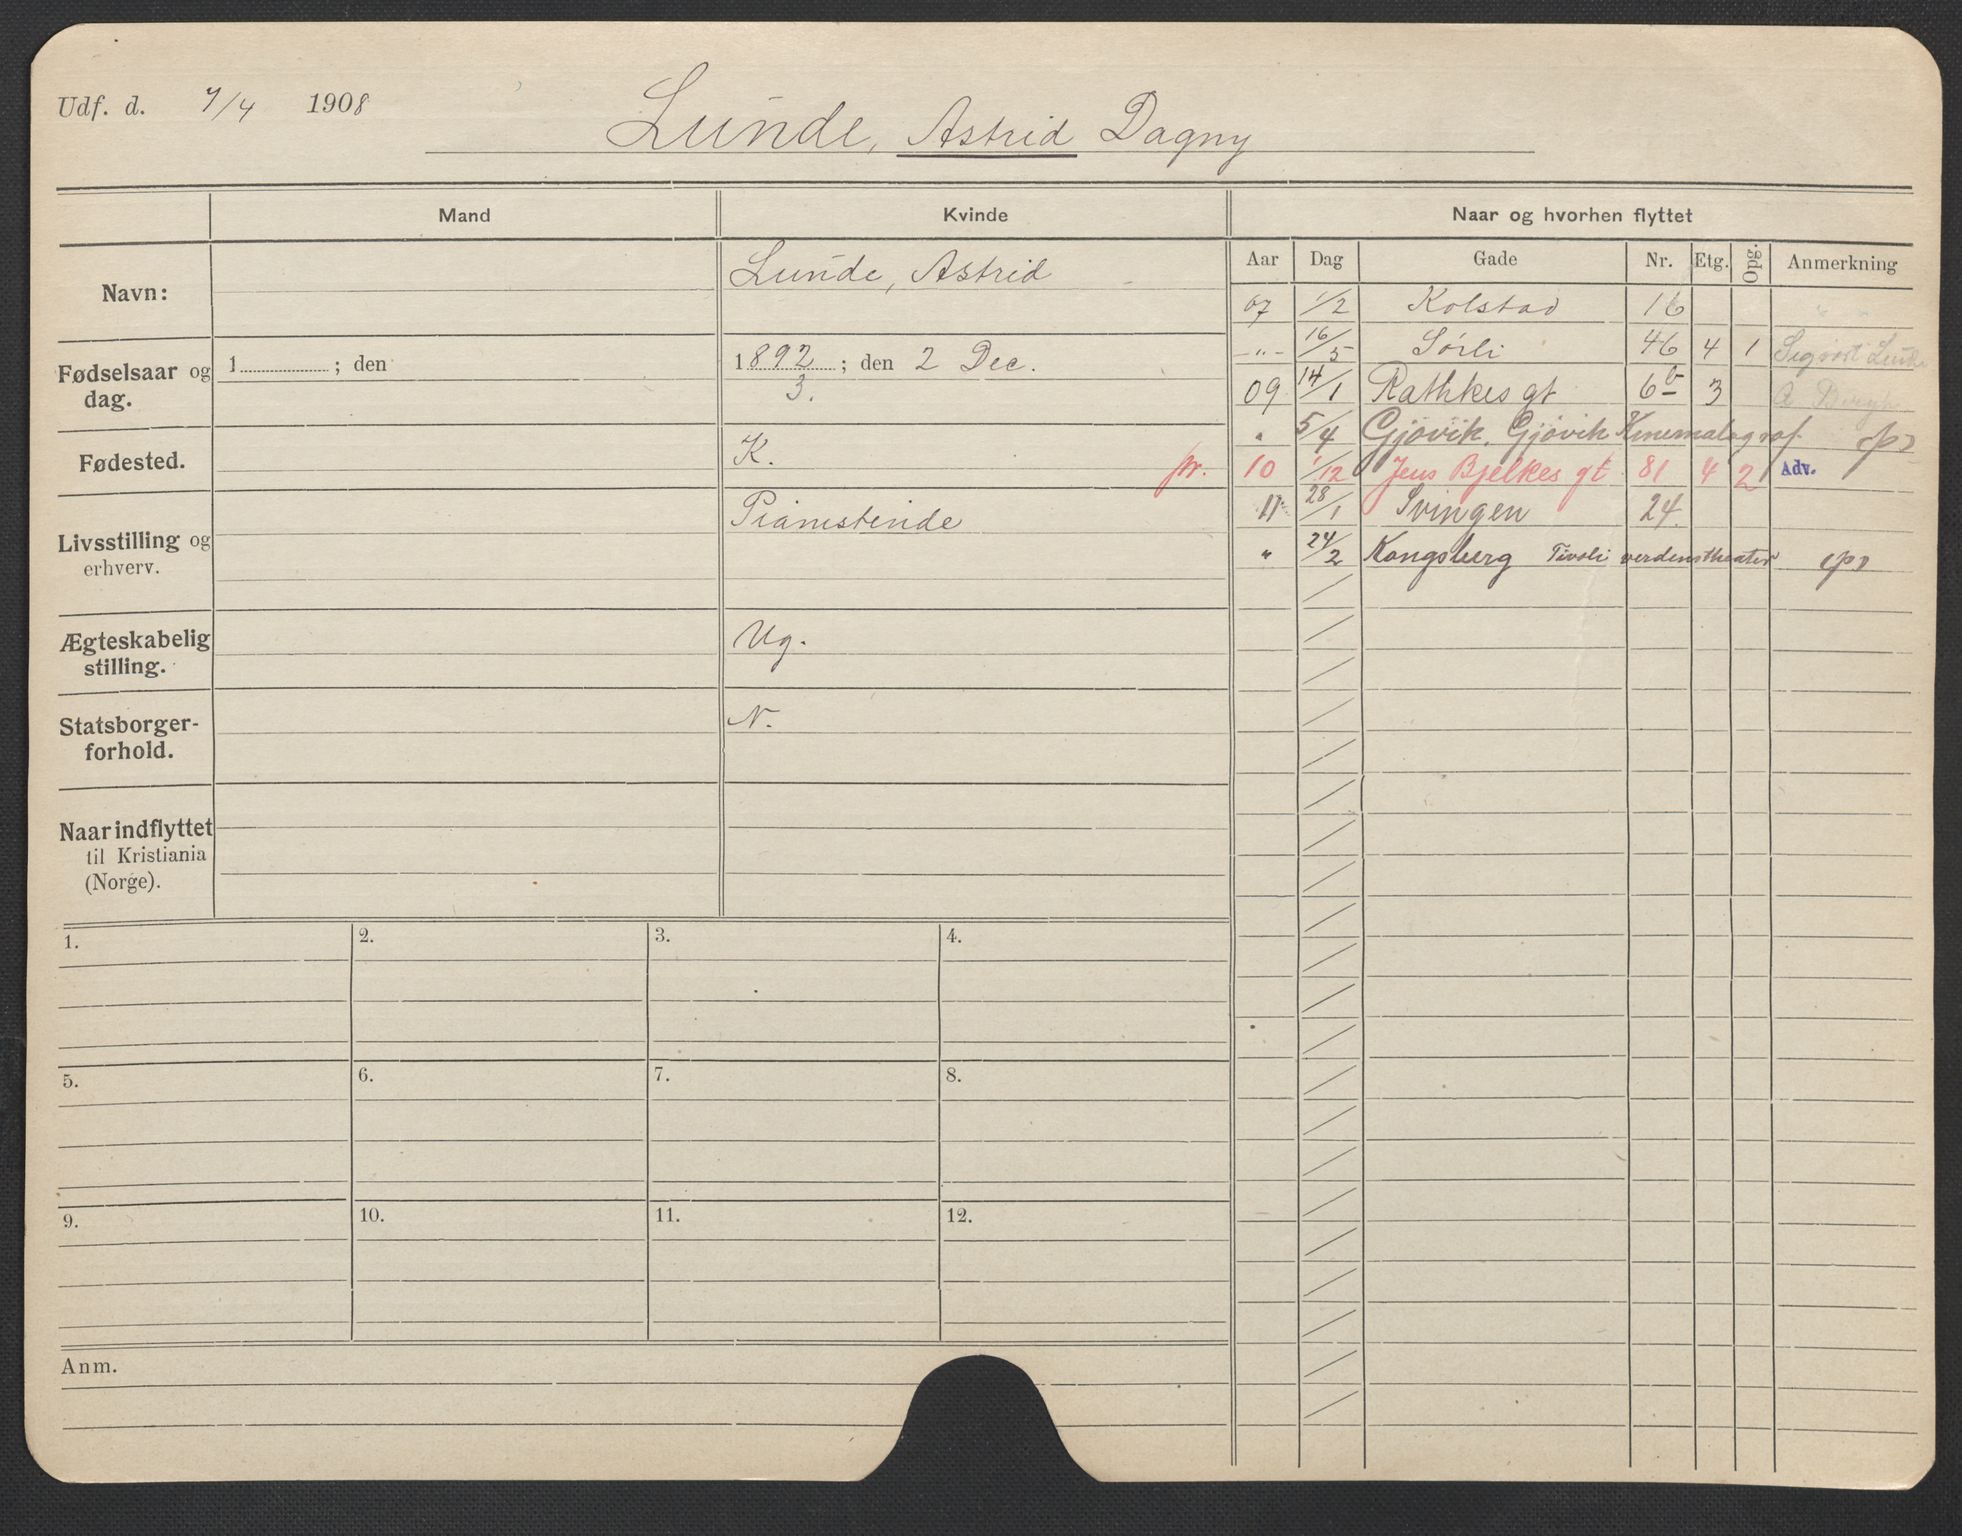 Udf. d. 7/4 1908 Lunde, Astrid Dagny
Mand Kvinde Naar og hvorhen flyttet
Aar Dag Gade Nr. Etg. Opg. Anmerkning
Navn: Lunde, Astrid
Fødselsaar og dag. 1 ; den 1892 ; den 2 Dec.
3.
Fødested. K.
Livsstilling og erhverv. Pianistinde
Ægteskabelig stilling. Ug.
Statsborgerforhold. N.
Naar indflyttet
til Kristiania
(Norge).
07 1/2 Kolstad 16 " "
-"- 16/5 Sörli 46 4 1 Sigvart Lunde
09 14/1 Rathkes gt 6b 3 A
" 5/4 Gjövik. Gjövik Kinematograf.
pr. 10 1/12 Jens Bjelkes gt 81 4 2 Adv.
11 28/1 Svingen 24.
" 24/2 Kongsberg Tivoli verdenstheater
1. 2. 3. 4.
5. 6. 7. 8.
9. 10. 11. 12.
Anm.